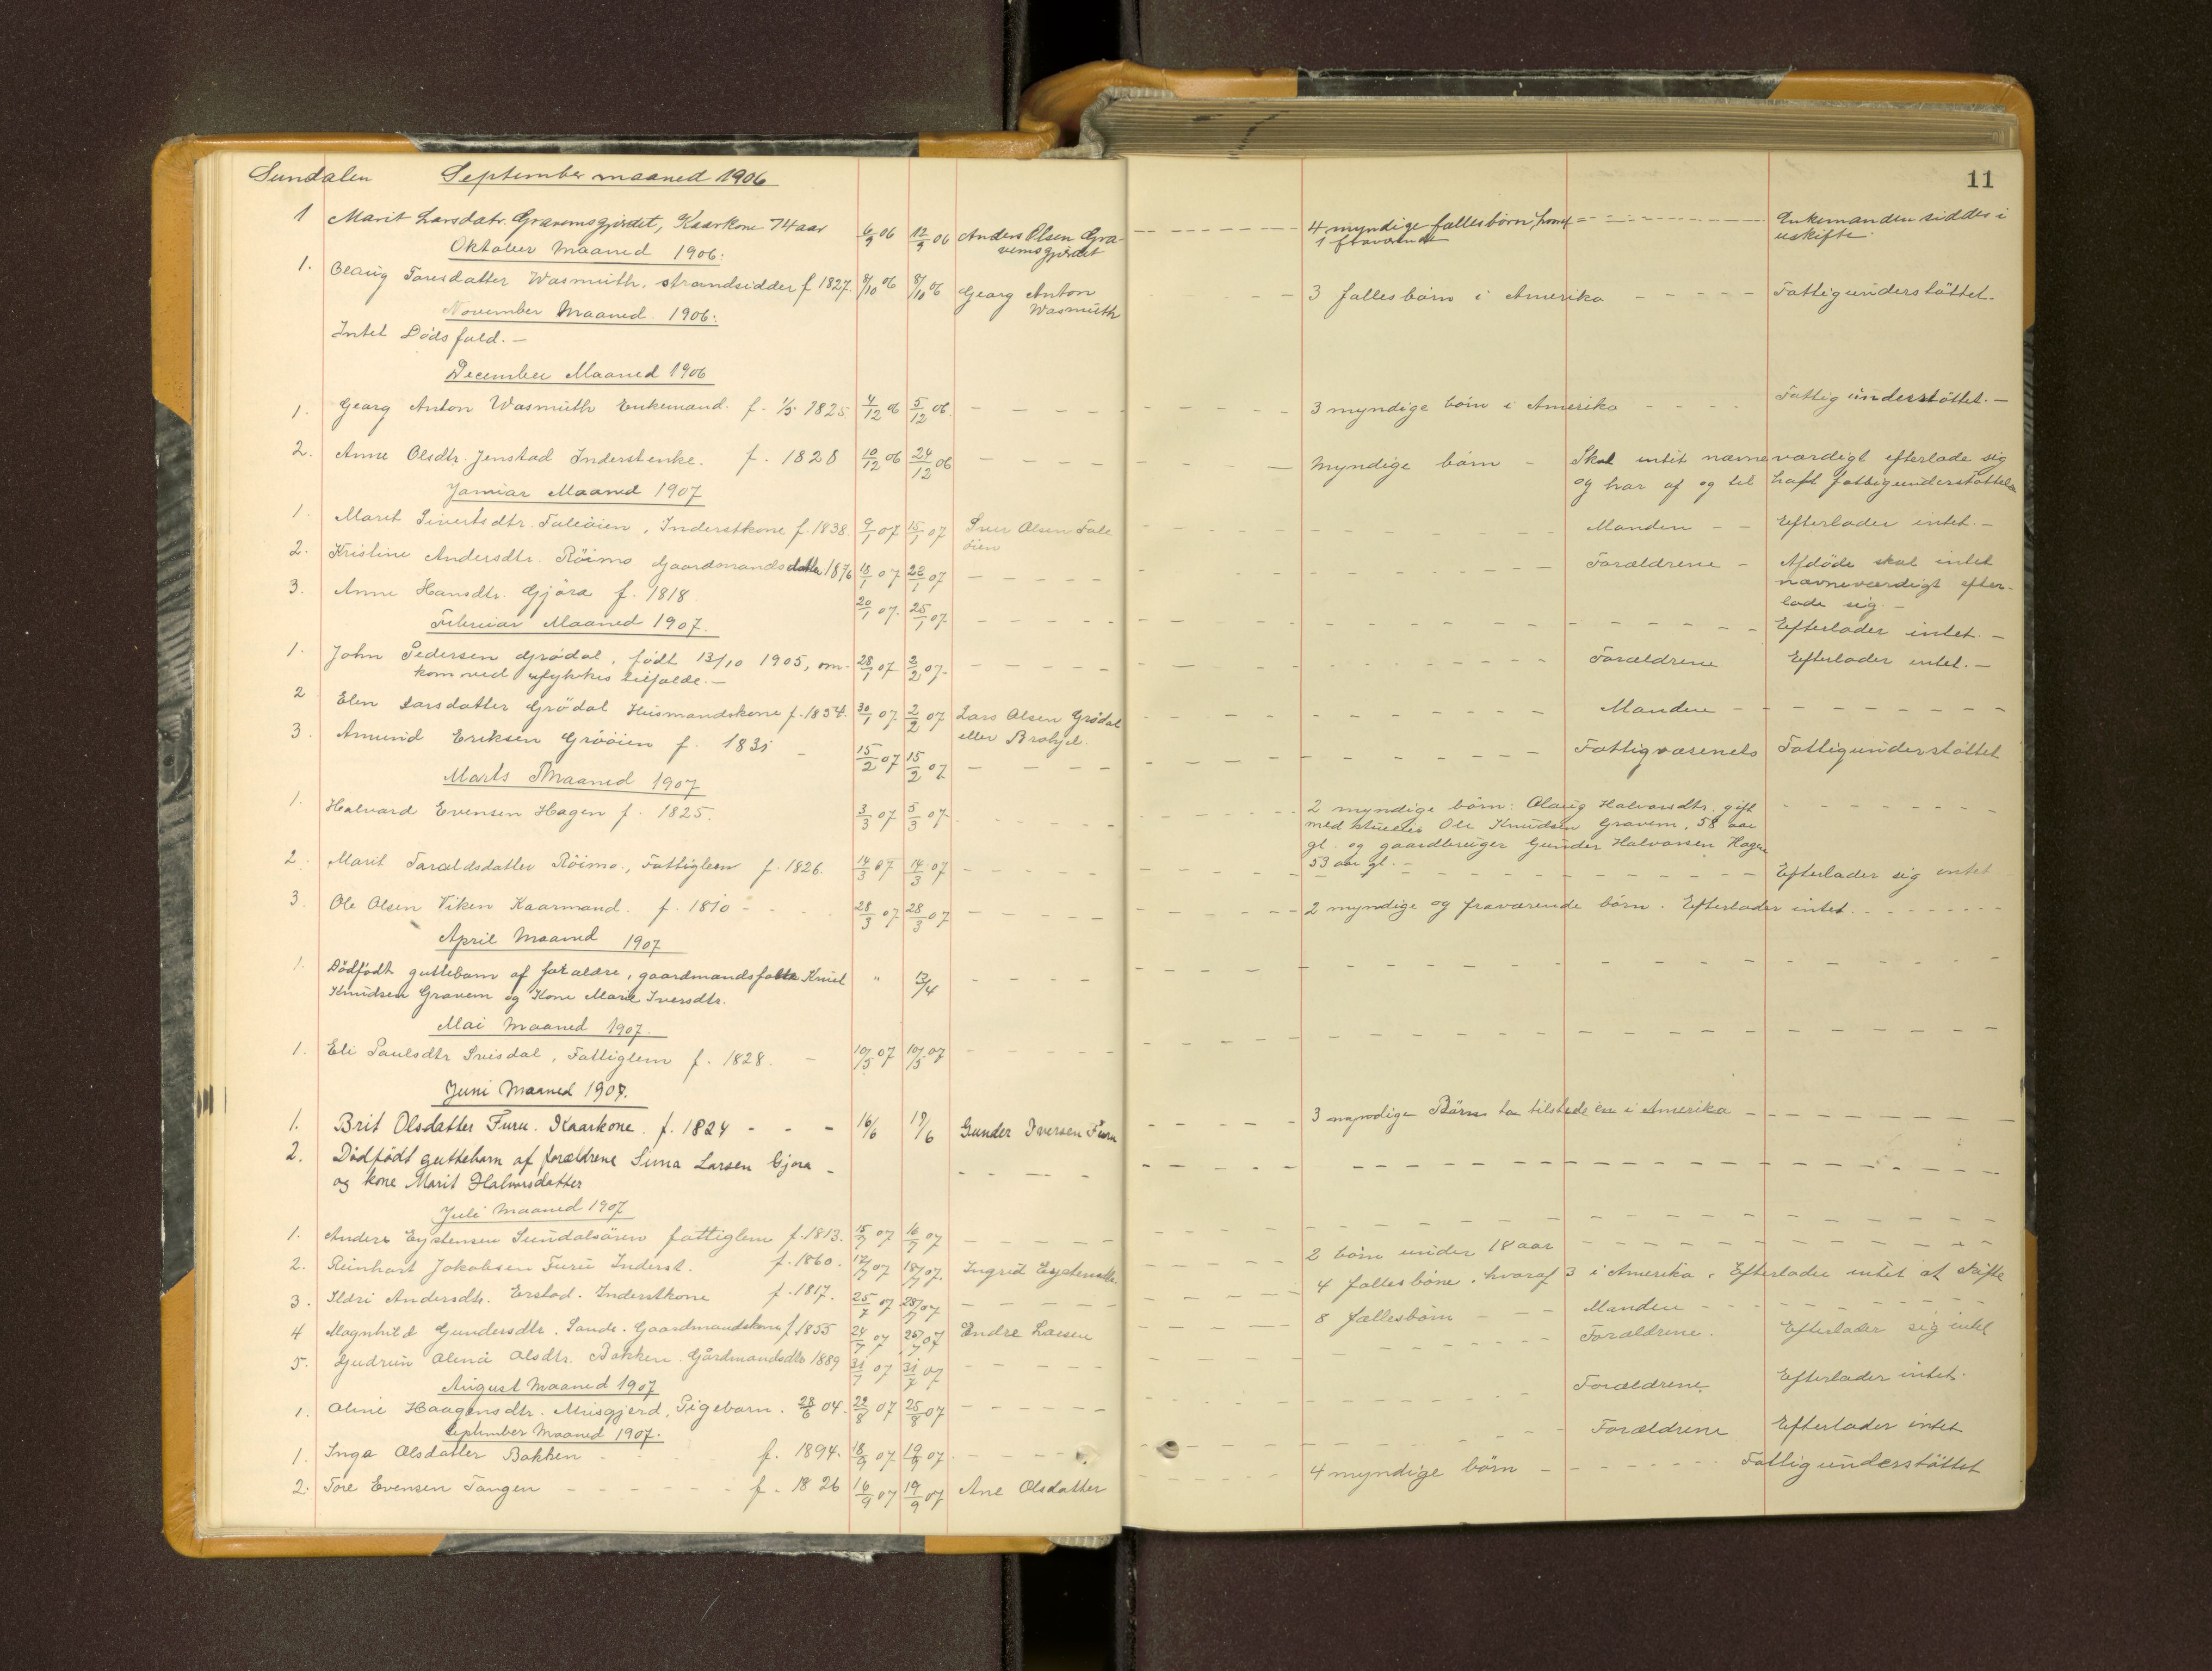 Sundalen September maaned 1906
11
1 Marit Larsdatr. Gravemsgjærdet, Kaarkone 74 aar 6/9 06 12/9 06 Anders Olsen Gra- 4 myndige fællesbörn, hvoraf Enkemanden sidder i
vemsgjærdet 1 fraværende uskifte.
Oktober Maaned 1906:
1. Olaug Toresdatter Wasmuth, strandsidder f 1827. 8/10 06 8/10 06 Georg Anton 3 fælles börn i Amerika Fattigunderstöttet.
Wasmuth
November Maaned. 1906:
Intet Dödsfald. -
December Maaned 1906
1. Georg Anton Wasmuth Enkemand. f. 1/5 1825 4/12 06 5/12 06. 3 myndige börn i Amerika Fattigunderstöttet. -
2. Anne Olsdtr. Jenstad Inderstenke. f. 1828 10/12 06 24/12 06 Myndige börn - Skal intet nævneværdigt efterlade sig
og har af og til haft fattigunderstöttelse
Januar Maaned 1907
1. Marit Sivertsdtr. Faleöien, Inderstkone f. 1838. 9/1 07 15/1 07 Iver Olsen Fale Manden - - Efterlader intet. -
öien
2. Kristine Andersdtr. Röimo Gaardmandsdatter 1876 18/1 07 22/1 07 Forældrene - Afdöde skal intet
nævneværdigt efter-
lade sig. -
3. Anne Hansdtr. Gjöra f. 1818 20/1 07. 25/1 07. Efterlader intet. -
Februar Maaned 1907.
1. John Pedersen Grödal, födt 13/10 1905, om- 28/1 07 2/2 07. Forældrene Efterlader intet. -
kom ved ulykkestilfælde. -
2 Elen Larsdatter Grödal Husmandskone f. 1834. 30/1 07 2/2 07 Lars Olsen Grödal Manden -
eller Brahjel.
3. Amund Eriksen Grööien f. 1831 - 15/2 07 15/2 07 Fattigvæsenets Fattigunderstöttet
Marts Maaned 1907
1. Halvard Evensen Hagen f. 1825. 3/3 07 5/3 07. 2 myndige börn: Olaug Halvorsdtr. gift
med Ole Knudsen Gravem, 58 aar
gl. og gaardbruger Gunder Halvorsen Hagen
53 aar gl. -
2. Marit Taraldsdatter Röimo, Fattiglem f. 1826. 14/3 07 14/3 07 Efterlader sig intet
3. Ole Olsen Viken Kaarmand. f. 1810 - 28/3 07 28/3 07 2 myndige og fraværende börn. Efterlader intet.
April Maaned 1907
1. Dödfödt guttebarn af forældre, gaardmandsfolk Knut " 13/4
Knudsen Gravem og Kone Marie Iversdtr.
Mai Maaned 1907.
1. Eli Paulsdtr Snisdal, Fattiglem f. 1828. - 10/5 07 10/5 07
Juni Maaned 1907.
1. Brit Olsdatter Furu. Kaarkone. f. 1824 - - - 16/6 19/6 Gunder Iversen Furu 3 myndige Börn to tilstede en i Amerika
2. Dödfödt guttebarn af forældrene Larsen Gjöra -
og kone Marit Halvorsdatter
Juli Maaned 1907
1. Anders Eystensen Sundalsören fattiglem f. 1813. 15/7 07 16/7 07
2. Reinhart Jakobsen Furu Inderst. f. 1860. 17/7 07 18/7 07. Ingrid Eystensdtr. 2 börn under 18 aar
3. Ildri Andersdtr. Erstad. Inderstkone f. 1817. 25/7 07 28/7 07 4 fælles börn, hvoraf 3 i Amerika. Efterlader intet at skifte
4 Magnhild Gundersdtr. Sande. Gaardmandskone f. 1855 24/7 07 26/7 07 Endre Larsen 8 fællesbörn - - - Manden
5. Gudrun Olina Olsdtr. Bakken. Gårdmandsdtr 1889 31/7 07 31/7 07 Forældrene. Efterlader sig intet
August Maaned 1907
1. Oline Haagensdtr. Musgjerd, Pigebarn. 28/6 04. 22/8 07 25/8 07 Forældrene. Efterlader intet.
September Maaned 1907.
1. Inga Olsdatter Bakken f. 1894. 18/9 07 19/9 07. Forældrene Efterlader intet
2. Tore Evensen Tangen f. 1826 16/9 07 19/9 07 Ane Olsdatter 4 myndige börn Fattigunderstöttet